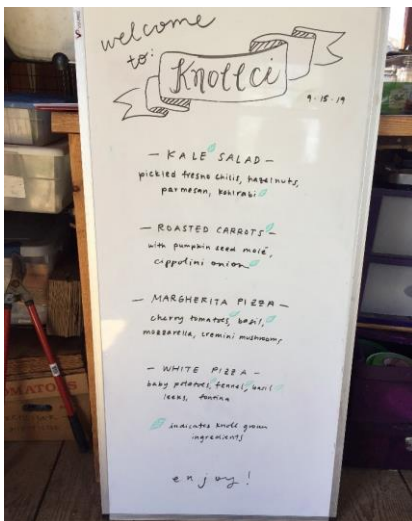 welcome
to:
Knollci
9·15·19
— KALE SALAD —
pickled fresno chilis, hazelnuts,
parmesan, kohlrabi
— ROASTED CARROTS —
with pumpkin seed molé,
cippolini onion
— MARGHERITA PIZZA —
cherry tomatoes, basil,
mozzarella, cremini mushrooms
— WHITE PIZZA —
baby potatoes, fennel, basil
leeks, fontina
indicates Knoll grown
ingredients
enjoy!
TOMATOES